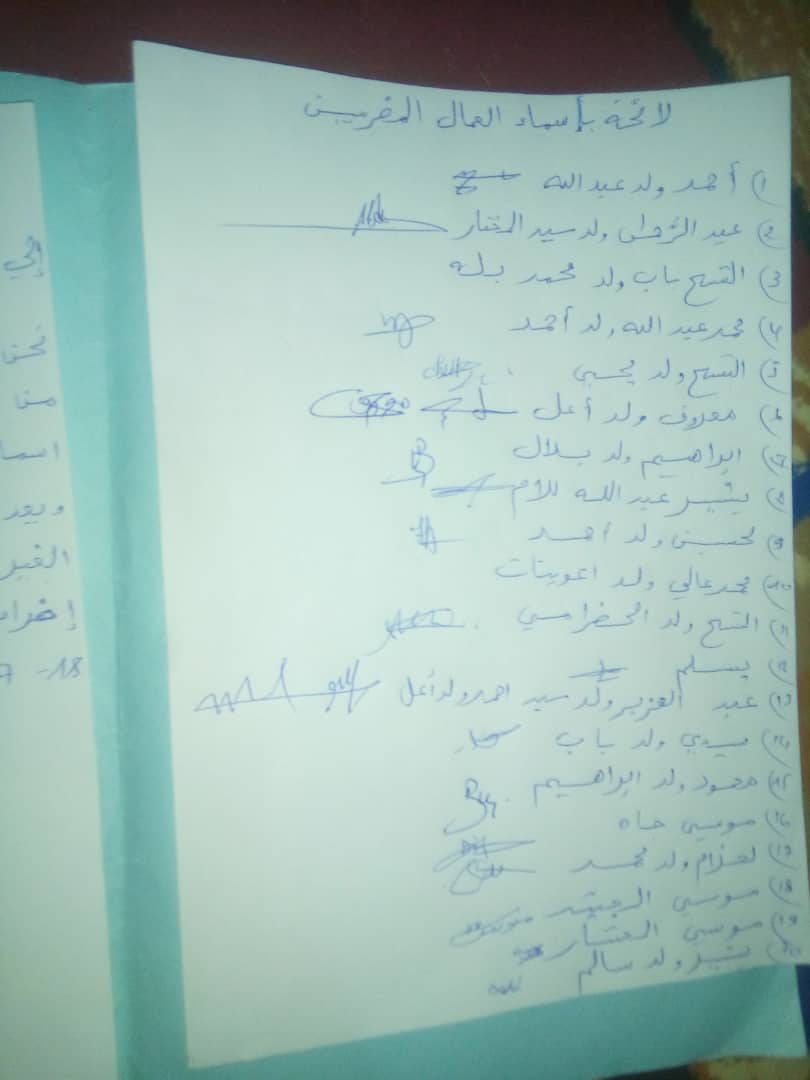 لائحة بأسماء العمال المضربين
1) أحمد ولد عبد الله
2) عبد الرحمن ولد سيد المختار
3) الشيخ باب ولد محمد
4) محمد عبد الله ولد أحمد
5) الشيخ ولد يحيى
6) معروف ولد أعل
7) ابراهيم ولد بلال
8) بشير عبد الله
9) لحسن ولد أحمد
10) محمد عالي ولد اعوينات
11) الشيخ ولد الحضرامي
12) يسلم
13) عبد العزيز ولد سيد احمد ولد أعل
14) سيدي ولد باب
15) مسعود ولد ابراهيم
16) موسى
17) ولد محمد
18) موسى
19) موسى
20) ولد سالم
إلى
نحن
من
اسما
وبعد
الغير
إضرا
18-